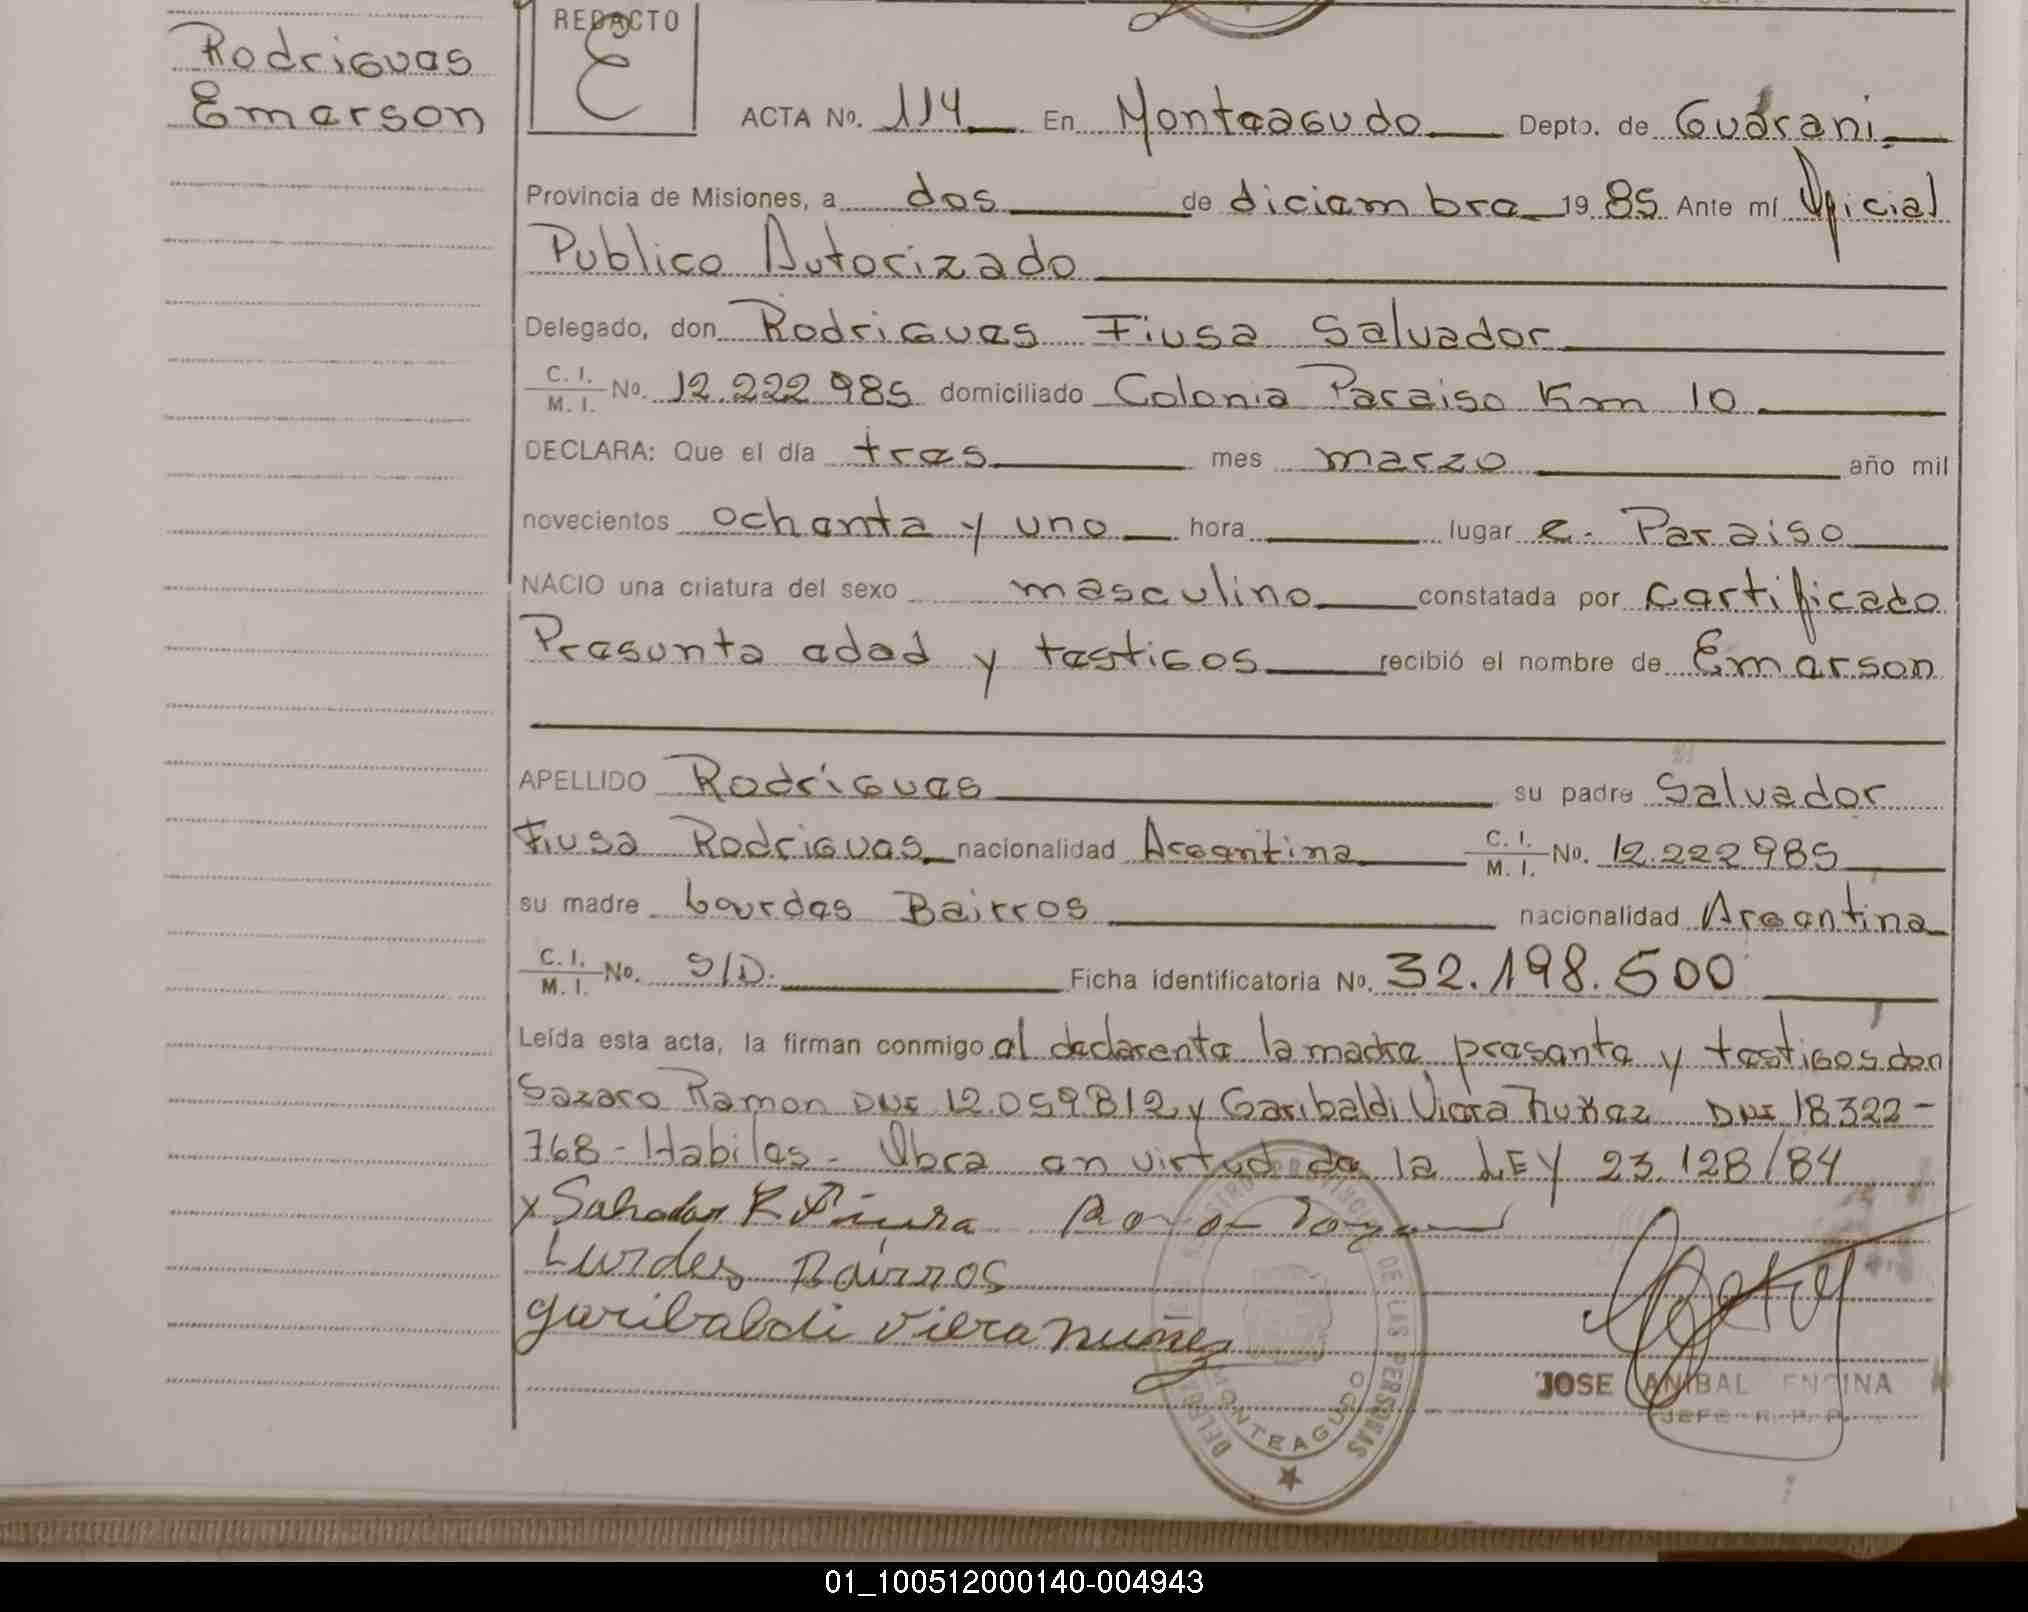 Rodrigues
Emerson
REDACTO
E
ACTA No. 114 En Monteagudo Depto. de Guarani
Provincia de Misiones, a dos de diciembre 1985 Ante mí Oficial
Publico Autorizado
Delegado, don Rodrigues Fiusa Salvador
C. I. / M. I. No. 12.222985 domiciliado Colonia Paraiso Km 10
DECLARA: Que el día tres mes marzo año mil
novecientos ochenta y uno hora lugar C. Paraiso
NACIO una criatura del sexo masculino constatada por certificado
Presunta edad y testigos recibió el nombre de Emerson
APELLIDO Rodrigues su padre Salvador
Fiusa Rodrigues nacionalidad Argentina C. I. / M. I. No. 12.222985
su madre Lourdes Bairros nacionalidad Argentina
C. I. / M. I. No. S/D. Ficha identificatoria No. 32.198.500
Leída esta acta, la firman conmigo el declarente la madre presente y testigos don
Sazaro Ramon DNI 12.059812 y Garibaldi Viera Nuñez DNI 18322-
768 - Habiles - Obra en virtud de la LEY 23.128/84
x Salvador R Fiusa
Lurdes Bairros
garibaldi viera nuñez
DE LAS PERSONAS
MONTEAGUDO
JOSE ANIBAL ENCINA
JEFE R. P. P.
01_100512000140-004943